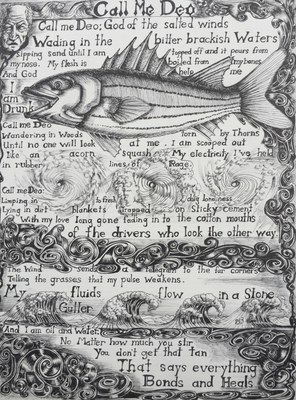 Call Me Deo
Call me Deo; God of the salted winds
Wading in the bitter brackish Waters
Sipping sand until I am topped off and it pours from
my nose. My flesh is boiled from my bones
And God help me
I
am
Drunk
Call me Deo
Wandering in Woods Torn by Thorns
Until no one will look at me. I am scooped out
like an acorn squash My electricity I've held
in rubber lines of Rage
Call me Deo
Limping in loneliness
lying in dirt blankets on Sticky cement
With my love long gone fading in to the cotton mouths
of the drivers who look the other way.
The Wind sends a telegram to the far corners
Telling the grasses that my pulse weakens.
My fluids flow in a Stone
Gutter
And I am oil and Water
No Matter how much you stir
You don't get that tan
That says everything
Bonds and Heals